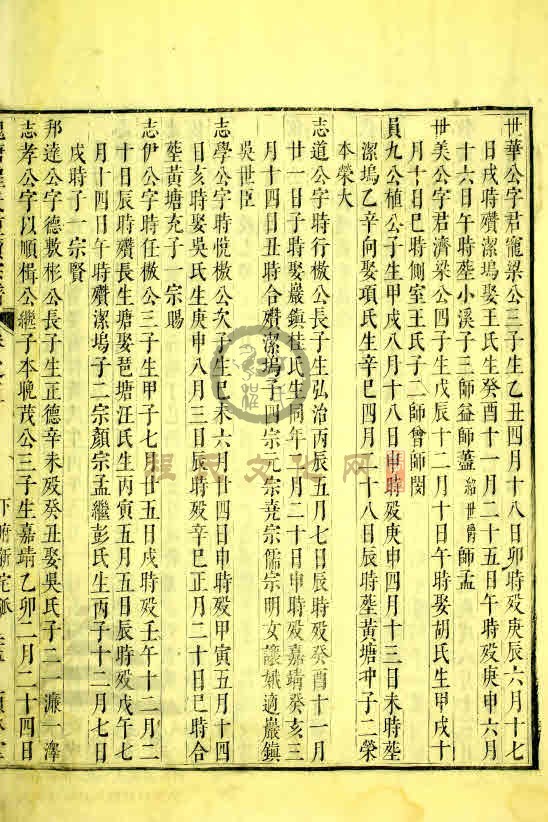 世華公字君寵梁公三子生乙丑四月十八日卯時歿庚辰六月十七
日戌時殯潔塢娶王氏生癸酉十一月二十五日午時歿庚申六月
十六日午時塟小溪子三師益師蓋紹世爵師孟
世美公字君濟梁公四子生戊辰十二月十日午時娶胡氏生甲戌十
月十日巳時側室王氏子二師曾師閔
員九公植公子生甲戌八月十八日申時歿庚申四月十三日未時塟
潔塢乙辛向娶項氏生辛巳四月二十八日辰時塟黃塘冲子二榮
本榮大
志道公字時行檄公長子生弘治丙辰五月七日辰時歿癸酉十一月
廿一日子時娶巖鎮佳氏生同年二月二十日申時歿嘉靖癸亥三
月十四日丑時合殯潔塢子四宗元宗堯宗儒宗明女讓娥適巖鎮
吳世臣
志學公字時悅檄公次子生己未六月廿四日申時歿甲寅五月十四
日亥時娶吳氏生庚申八月三日辰時歿辛巳正月二十日巳時合
塟黃塘充子一宗賜
志伊公字時任檄公三子生甲子七月廿五日戌時歿壬午十二月二
十日辰時殯長生塘娶琶塘汪氏生丙寅五月五日辰時歿戊午七
月十四日午時殯潔塢子二宗顏宗孟繼彭氏生丙子十二月七日
戌時子一宗賢
邦達公字德敷彬公長子生正德辛未歿癸丑娶吳氏子二一濂一澤
志孝公字以順楫公繼子本晚茂公三子生嘉靖乙卯二月二十四日
程氏文化网